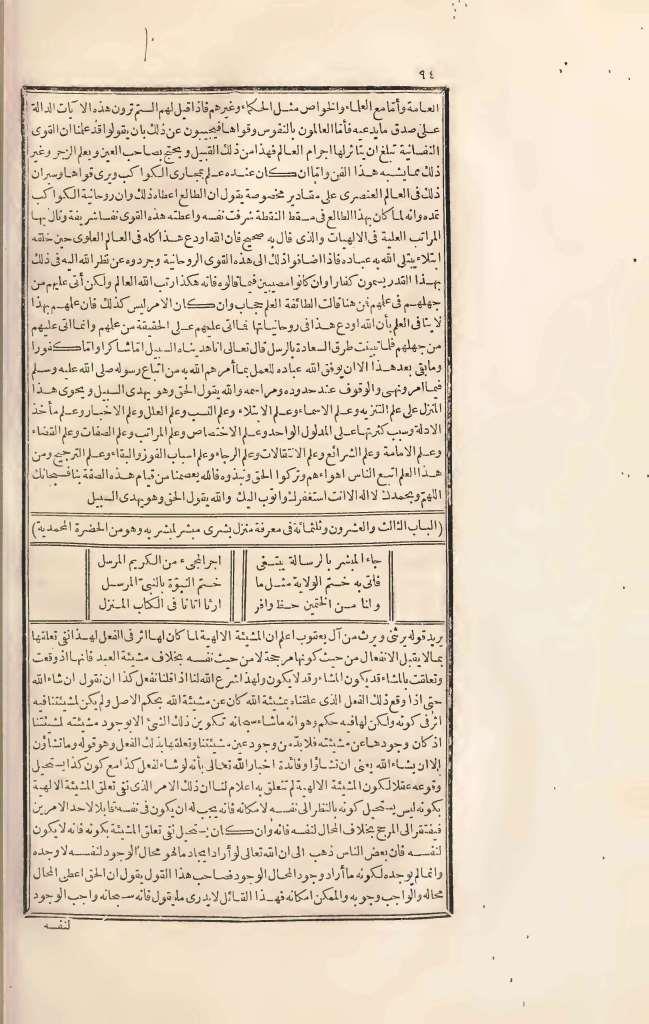 ٩٤
العامة وأمّا مع العلماء والخواص مثل الحكماء وغيرهم فاذا قيل لهم ألستم ترون هذه الآيات الدالة
على صدق ما يدعيه فأمّا العالمون بالنفوس وقواها فيجيبون عن ذلك بان يقولوا قد علمنا ان القوى
النفسانية تبلغ ان يتأثر لها اجرام العالم فهذا من ذلك القبيل ويحتج بصاحب العين وبعلم الزجر وغير
ذلك مما يشبه هذا الفن وامّا ان كان عنده علم بمجارى الكواكب ويرى قواها وسريان
ذلك فى العالم العنصرى على مقادير مخصوصة يقول ان الطالع اعطاه ذلك وان روحانية الكواكب
تمده وانه لما كان بهذا الطالع فى مسقط النقطة شرفت نفسه واعطته هذه القوى نفسا شريفة ونال بها
المراتب العلية فى الالهيات والذى قال به صحيح فان الله اودع هذا كله فى العالم العلوى حين خلقه
ابتلاء يبتلى الله به عباده فاذا اضافوا ذلك الى هذه القوى الروحانية وجردوه عن نظر الله اليه فى ذلك
بهذا القدر يسمون كفارا وان كانوا مصيبين فيما قالوه فانه هكذا رتب الله العالم ولكن أتى عليهم من
جهلهم فى علمهم فمن هنا قالت الطائفة العلم حجاب وان كان الامر ليس كذلك فان علمهم بهذا
لا ينافى العلم بأن الله اودع هذا فى روحانياتها فما اتى عليهم على الحقيقة من علمهم وانما اتى عليهم
من جهلهم فلما تبينت طرق السعادة بالرسل قال تعالى انا هديناه السبيل اما شاكرا واما كفورا
وما بقى بعد هذا الا ان يوفق الله عباده للعمل بما أمرهم الله به من اتباع رسوله صلى الله عليه وسلم
فيما امر ونهى والوقوف عند حدوده ومراسمه والله يقول الحق وهو يهدى السبيل ويحوى هذا
المنزل على علم التنزيه وعلم الاسماء وعلم الابتلاء وعلم النسب وعلم العلل وعلم الاخبار وعلم مأخذ
الادلة وسبب كثرتها على المدلول الواحد وعلم الاختصاص وعلم المراتب وعلم الصفات وعلم القضاء
وعلم الامامة وعلم الشرائع وعلم الانتقالات وعلم الرجاء وعلم اسباب الفوز والبقاء وعلم الترجيح ومن
هذا العلم اتبع الناس اهواءهم وتركوا الحق ونبذوه فالله يعصمنا من قيام هذه الصفة بنا فسبحانك
اللهم وبحمدك لا اله الا انت استغفرك واتوب اليك والله يقول الحق وهو يهدى السبيل
(الباب الثالث والعشرون وثلثمائة فى معرفة منزل بشرى مبشر لمبشر به وهو من الحضرة المحمدية)
جاء المبشر بالرسالة يبتغى اجر المجىء من الكريم المرسل
فاتى به ختم الولاية مثل ما ختم النبوّة بالنبىّ المرسل
وانا من الختمين حظ وافر ارثا اتانا فى الكتاب المنزل
يريد قوله يرثنى ويرث من آل يعقوب اعلم ان المشيئة الالهية لما كان لها اثر فى الفعل لهذا نفى تعلقها
بما لا يقبل الانفعال من حيث كونها مرجحة لا من حيث نفسه بخلاف مشيئة العبد فانها اذ وقعت
وتعلقت بالمشاء قد يكون المشاء وقد لا يكون ولهذا شرع الله لنا اذا قلنا نفعل كذا ان نقول ان شاء الله
حتى اذا وقع ذلك الفعل الذى علقناه بمشيئة الله كان عن مشيئة الله بحكم الاصل ولم يكن لمشيئتنا فيه
اثر فى كونه ولكن لها فيه حكم وهو انه ما شاء سبحانه تكوين ذلك الشئ الا بوجود مشيئته لمشيئتنا
اذ كان وجودها عن مشيئته فلا بدّ من وجود عين مشيئتنا وتعلقها بذلك الفعل وهو قوله وما تشاؤن
الا ان يشاء الله يعنى ان تشاؤا وفائدة اخبار الله تعالى بأنه لو شاء لفعل كذا مع كون كذا يستحيل
وقوعه عقلا لكون المشيئة الالهية لم تتعلق به اعلام لنا ان ذلك الامر الذى نفى تعلق المشيئة الالهية
بكونه ليس يستحيل كونه بالنظر الى نفسه لا مكانه فانه يجب له ان يكون فى نفسه قابلا لاحد الامرين
فيفتقر الى المرجح بخلاف المحال لنفسه فانه وان كان يستحيل نفى تعلق المشيئة بكونه فانه لا يكون
لنفسه فان بعض الناس ذهب الى ان الله تعالى لو أراد ايجاد ما هو محال الوجود لنفسه لا وجده
وانما لم يوجده لكونه ما أراد وجود المحال الوجود فصاحب هذا القول يقول ان الحق اعطى المحال
محاله والواجب وجوبه والممكن امكانه فهذا القائل لا يدرى ما يقول فانه سبحانه واجب الوجود
لنفسه